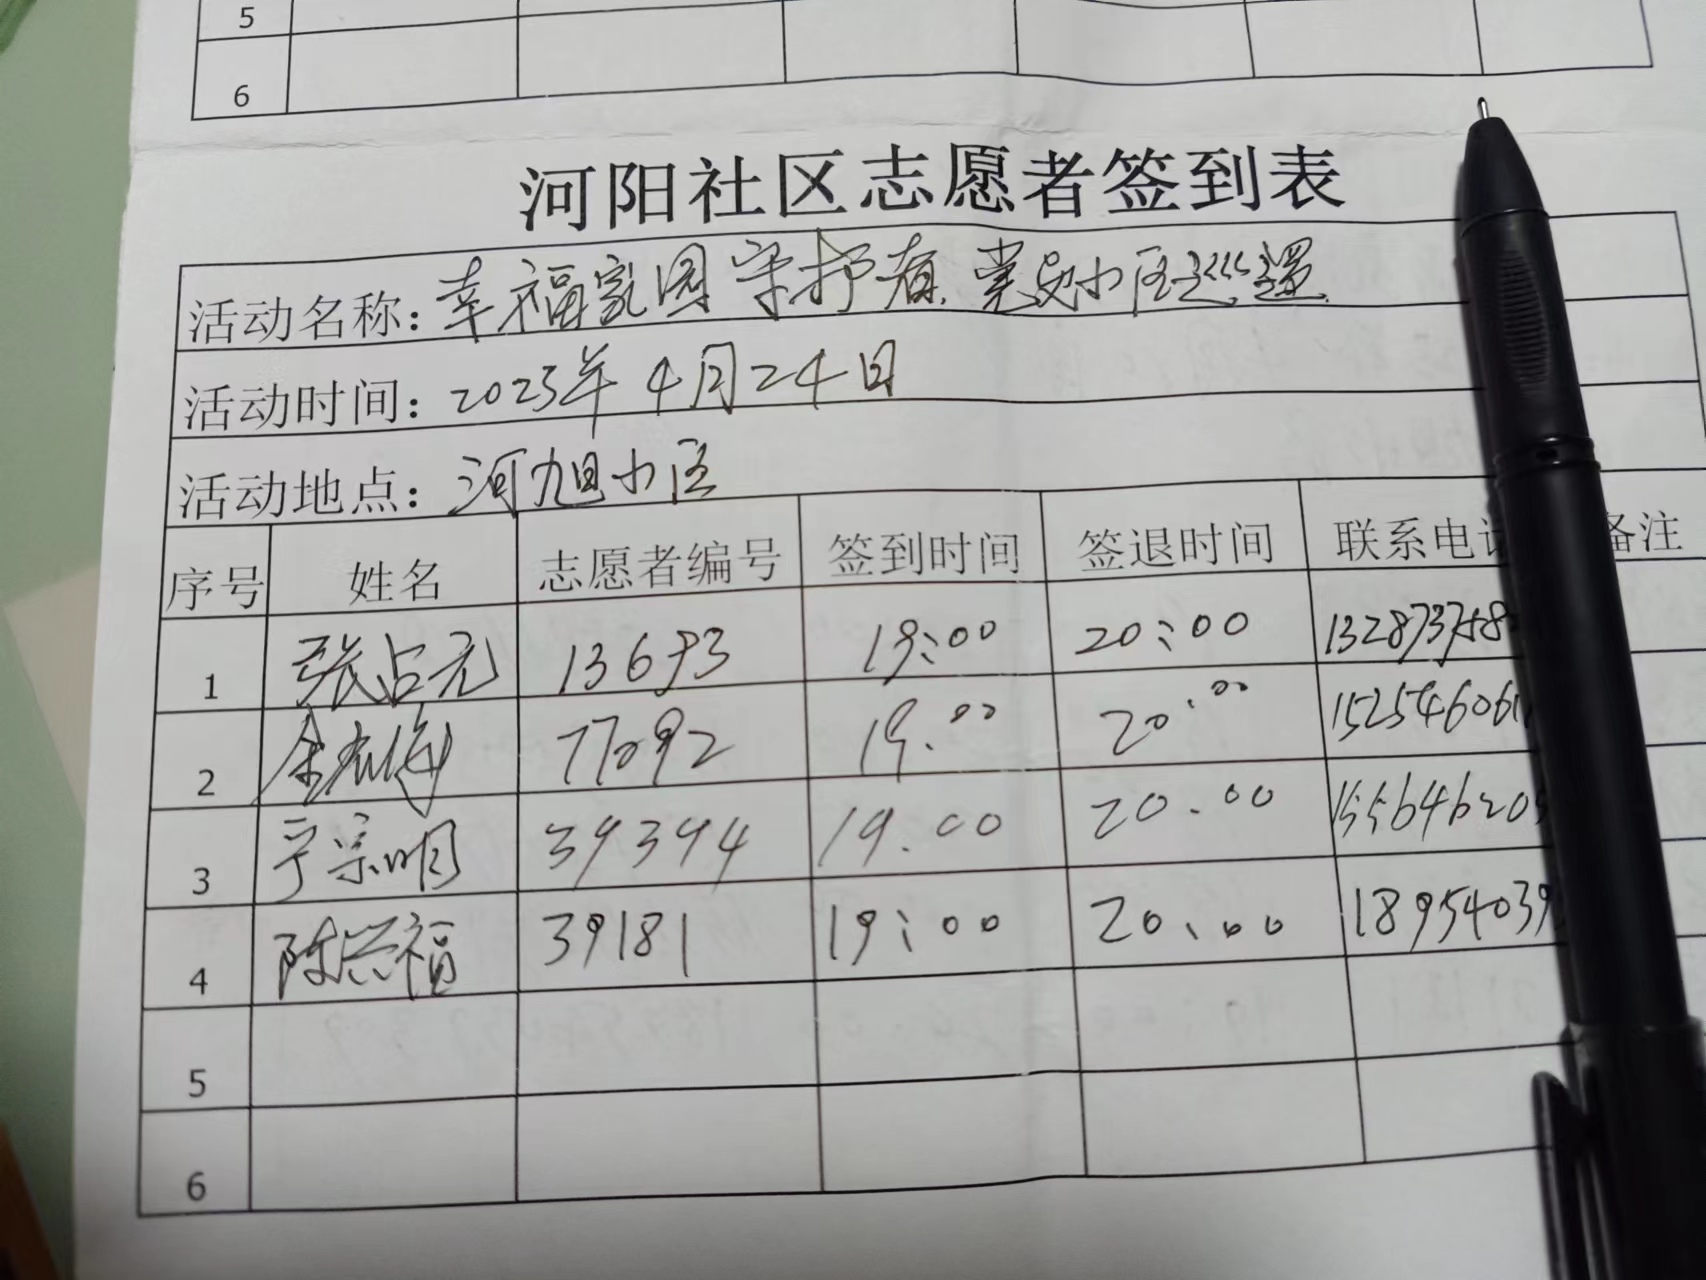 5
6
河阳社区志愿者签到表
活动名称：幸福家园守护者 小区巡逻
活动时间：2023年4月24日
活动地点：河旭小区
序号 姓名 志愿者编号 签到时间 签退时间 联系电话 备注
1 张占元 13693 19:00 20:00 132873758
2 77092 19.00 20.00 152546061
3 于宗明 39394 19.00 20.00 155646205
4 陈兴福 39181 19:00 20.00 18954039
5
6